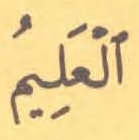 ٱلْعَلِيمُ